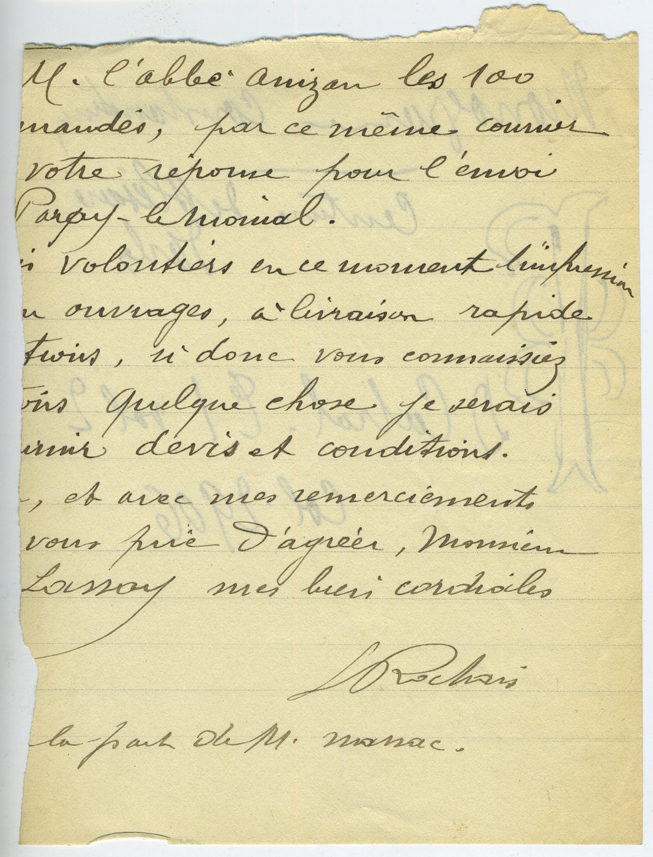 M. l'abbé Anizan les 100
mandés, par ce même courrier
votre réponse pour l'envoi
Paray-le-Monial.
is volontiers en ce moment l'impression
u ouvrages, à livraison rapide
tions, si donc vous connaissiez
ons quelque chose je serais
urnir devis et conditions.
, et avec mes remerciements
vous prie d'agréer, Monsieur
Lassay mes bien cordiales
Rochais
la part de M. Marsac.